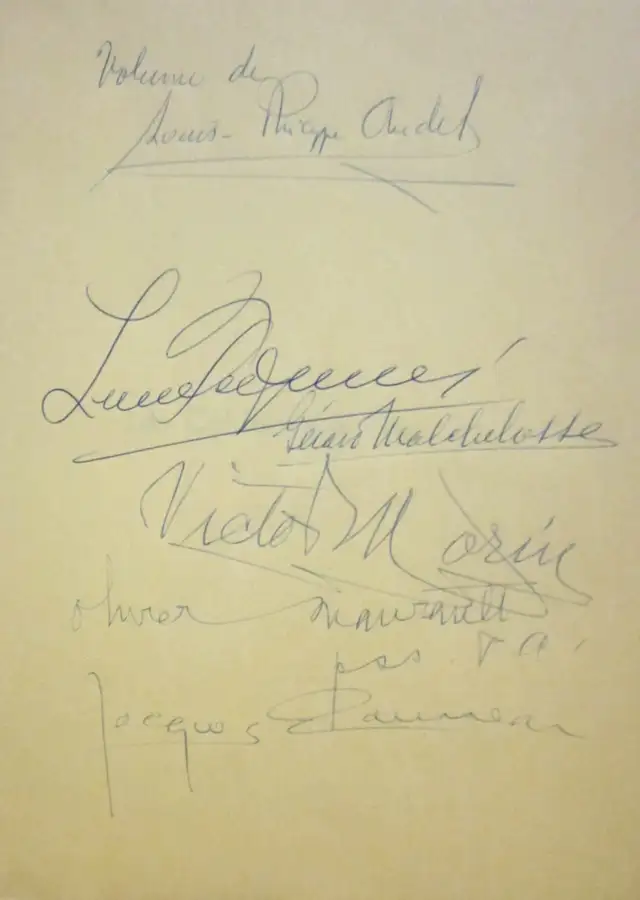 Volume de
Louis-Philippe Audet
Gérard Malchelosse
Victor Morin
Olivier Maurault
pss. P A.
Jacques Rousseau